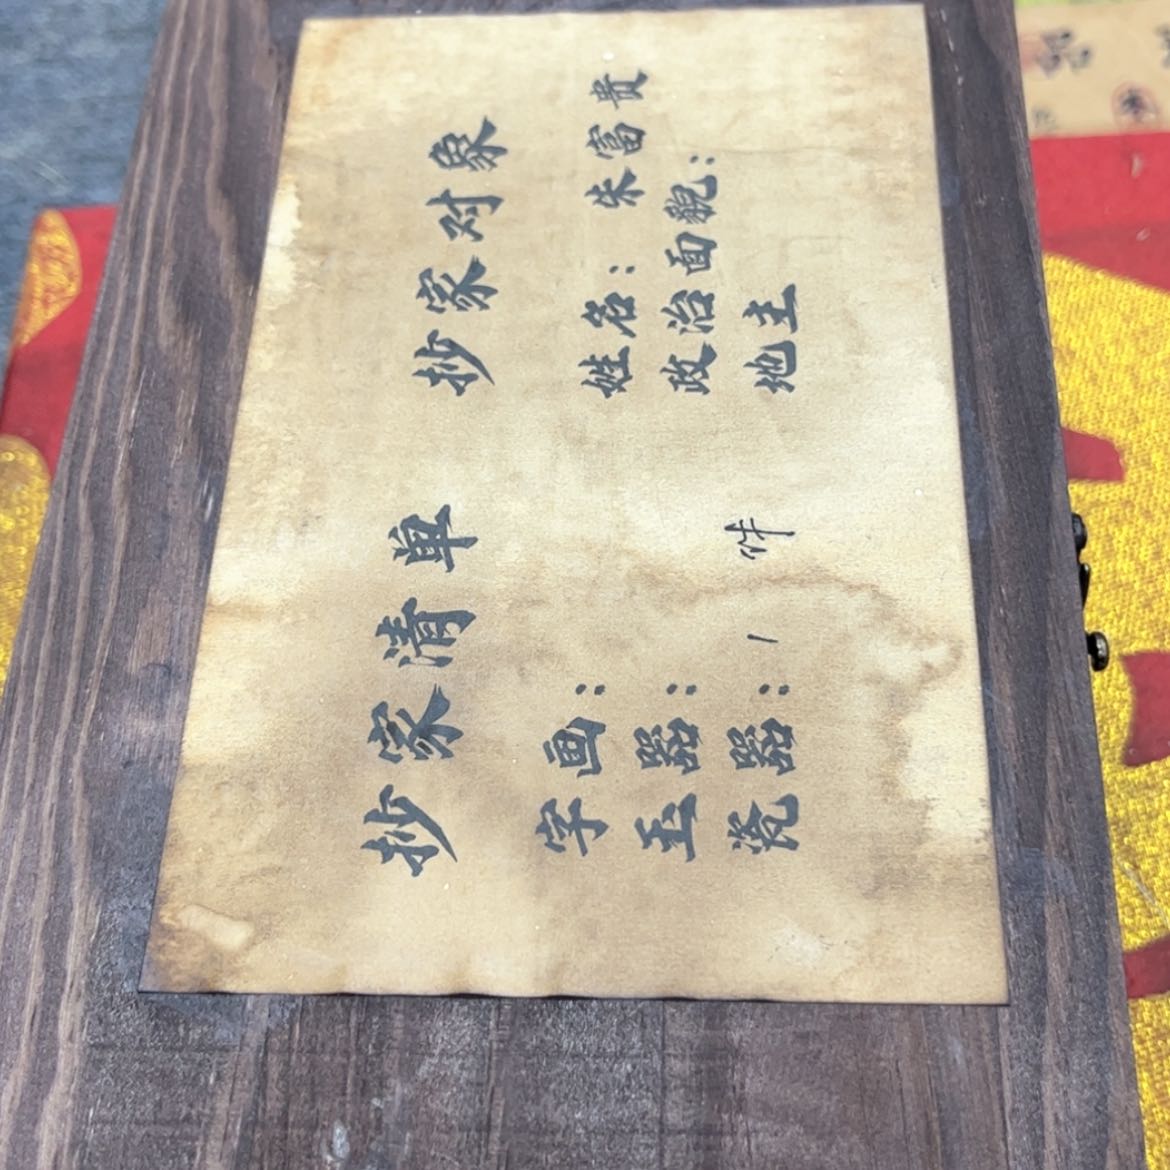 抄家清单
字画：
玉器：
瓷器： 1 件
抄家对象
姓名：朱富贵
政治面貌：
地主
品